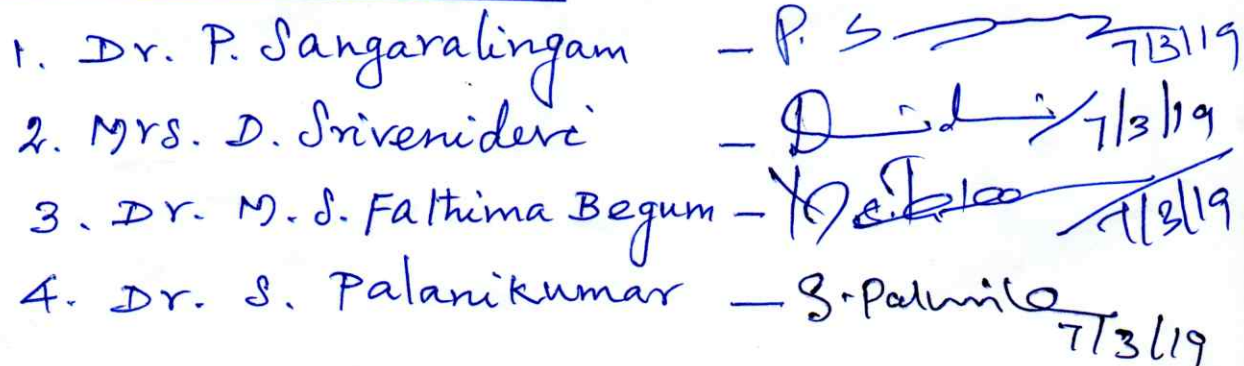 1. Dr. P. Sangaralingam - P. S 7/3/19
2. Mrs. D. Srivenidevi - D 7/3/19
3. Dr. M. S. Fathima Begum - 7/3/19
4. Dr. S. Palanikumar - S. 7/3/19